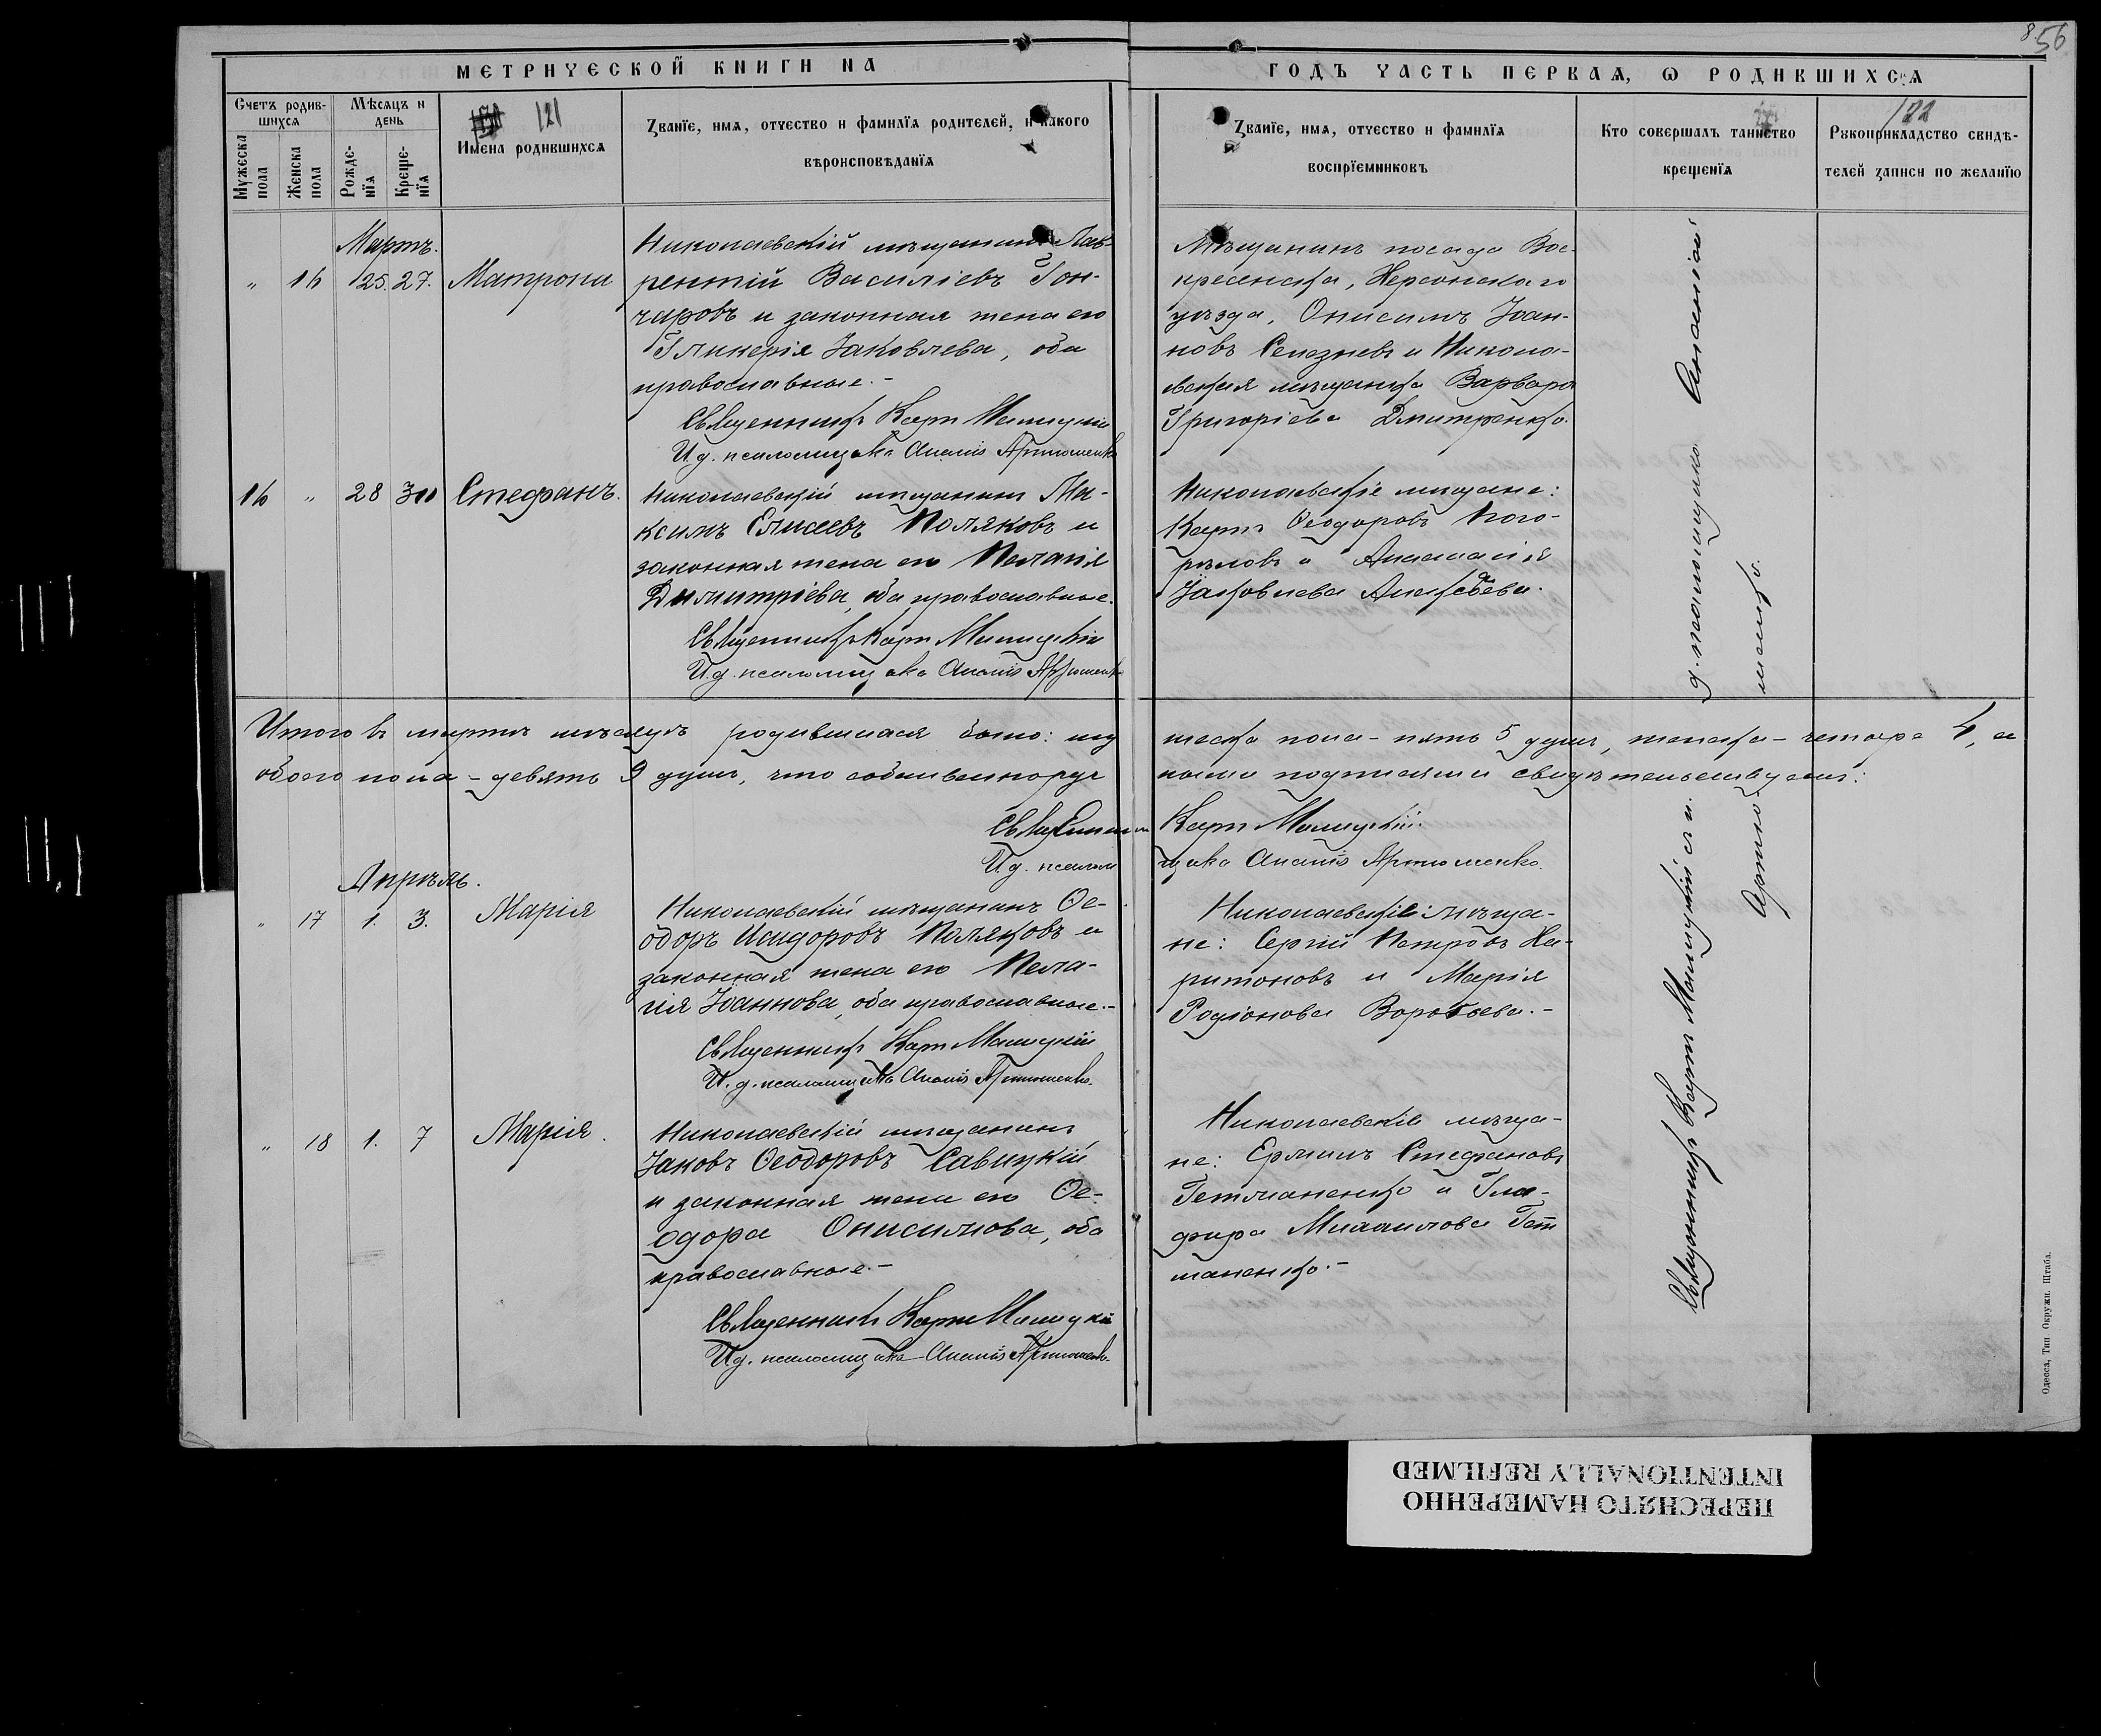 856
МЕТРИЧЕСКОЙ КНИГИ НА
ГОДЪ ЧАСТЬ ПЕРВАЯ, Ѡ РОДИВШИХСЯ
Счетъ родив-
шихся
Мѣсяцъ и
день
121
Имена родившихся
Мужеска
пола
Женска
пола
Рожде-
нїя
Креще-
нїя
Званїе, имя, отчество и фамилїя родителей, и какого
вѣроисповѣданїя
Званїе, имя, отчество и фамилїя
воспрїемниковъ
Кто совершалъ таинство
крещенїя
122
Рукоприкладство свидѣ-
телей записи по желанїю
Мартъ.
" 16 25. 27. Матрона
Николаевскій мѣщанинъ Лав-
рентій Василіевъ Гон-
чаровъ и законная жена его
Гликерія Іаковлева, оба
православные.-
Священникъ Карпъ
И. д. псаломщика Ананія Артюшенко
Мѣщанинъ посада Вос-
кресенска, Херсонскаго
уѣзда, Онисимъ Іоан-
новъ Селезневъ и Никола-
евская мѣщанка Варвара
Григоріева Дмитренко.
16 " 28 30 Стефанъ.
Николаевскій мѣщанинъ Ма-
ксимъ Елисеевъ Поляковъ и
законная жена его Пелагія
Димитріева, оба православные.
Священникъ Карпъ
И. д. псаломщика Ананія Артюшенко
Николаевскіе мѣщане:
Карпъ Ѳеодоровъ Пого-
рѣловъ и Анастасія
Іаковлева
Итого въ мартѣ мѣсяцѣ родившихся было: му
жеска пола - пять 5 душъ, женска - четыре 4, а
обоего пола - девять 9 душъ, что собственнору
чными подписями свидѣтельствуемъ:
Священникъ Карпъ
И. д. псалом
щика Ананія Артюшенко.
Апрѣль.
" 17 1. 3. Марія
Николаевскій мѣщанинъ Ѳе-
одоръ Исидоровъ Поляковъ и
законная жена его Пела-
гія Іоаннова, оба православные.-
Священникъ Карпъ
И. д. псаломщика Ананія Артюшенко.
Николаевскіе мѣща-
не: Сергій Петровъ Ха-
ритоновъ и Марія
Родіонова Воробьева.-
" 18 1. 7 Марія.
Николаевскій мѣщанинъ
Іаковъ Ѳеодоровъ Савицкій
и законная жена его Ѳе-
одора Онисимова, оба
православные.-
Священникъ Карпъ
И. д. псаломщика Ананія Артюшенко.
Николаевскіе мѣща-
не: Ермилъ Стефановъ
Гетманенко и Гла-
фира Михаилова Гет
маненко.-
Священникъ Карпъ
д. псаломщика Ананія
Артю-
шенко.
Одесса, Тип Окружн. Штаба.
ПЕРЕСНЯТО НАМЕРЕННО
INTENTIONALLY REFILMED